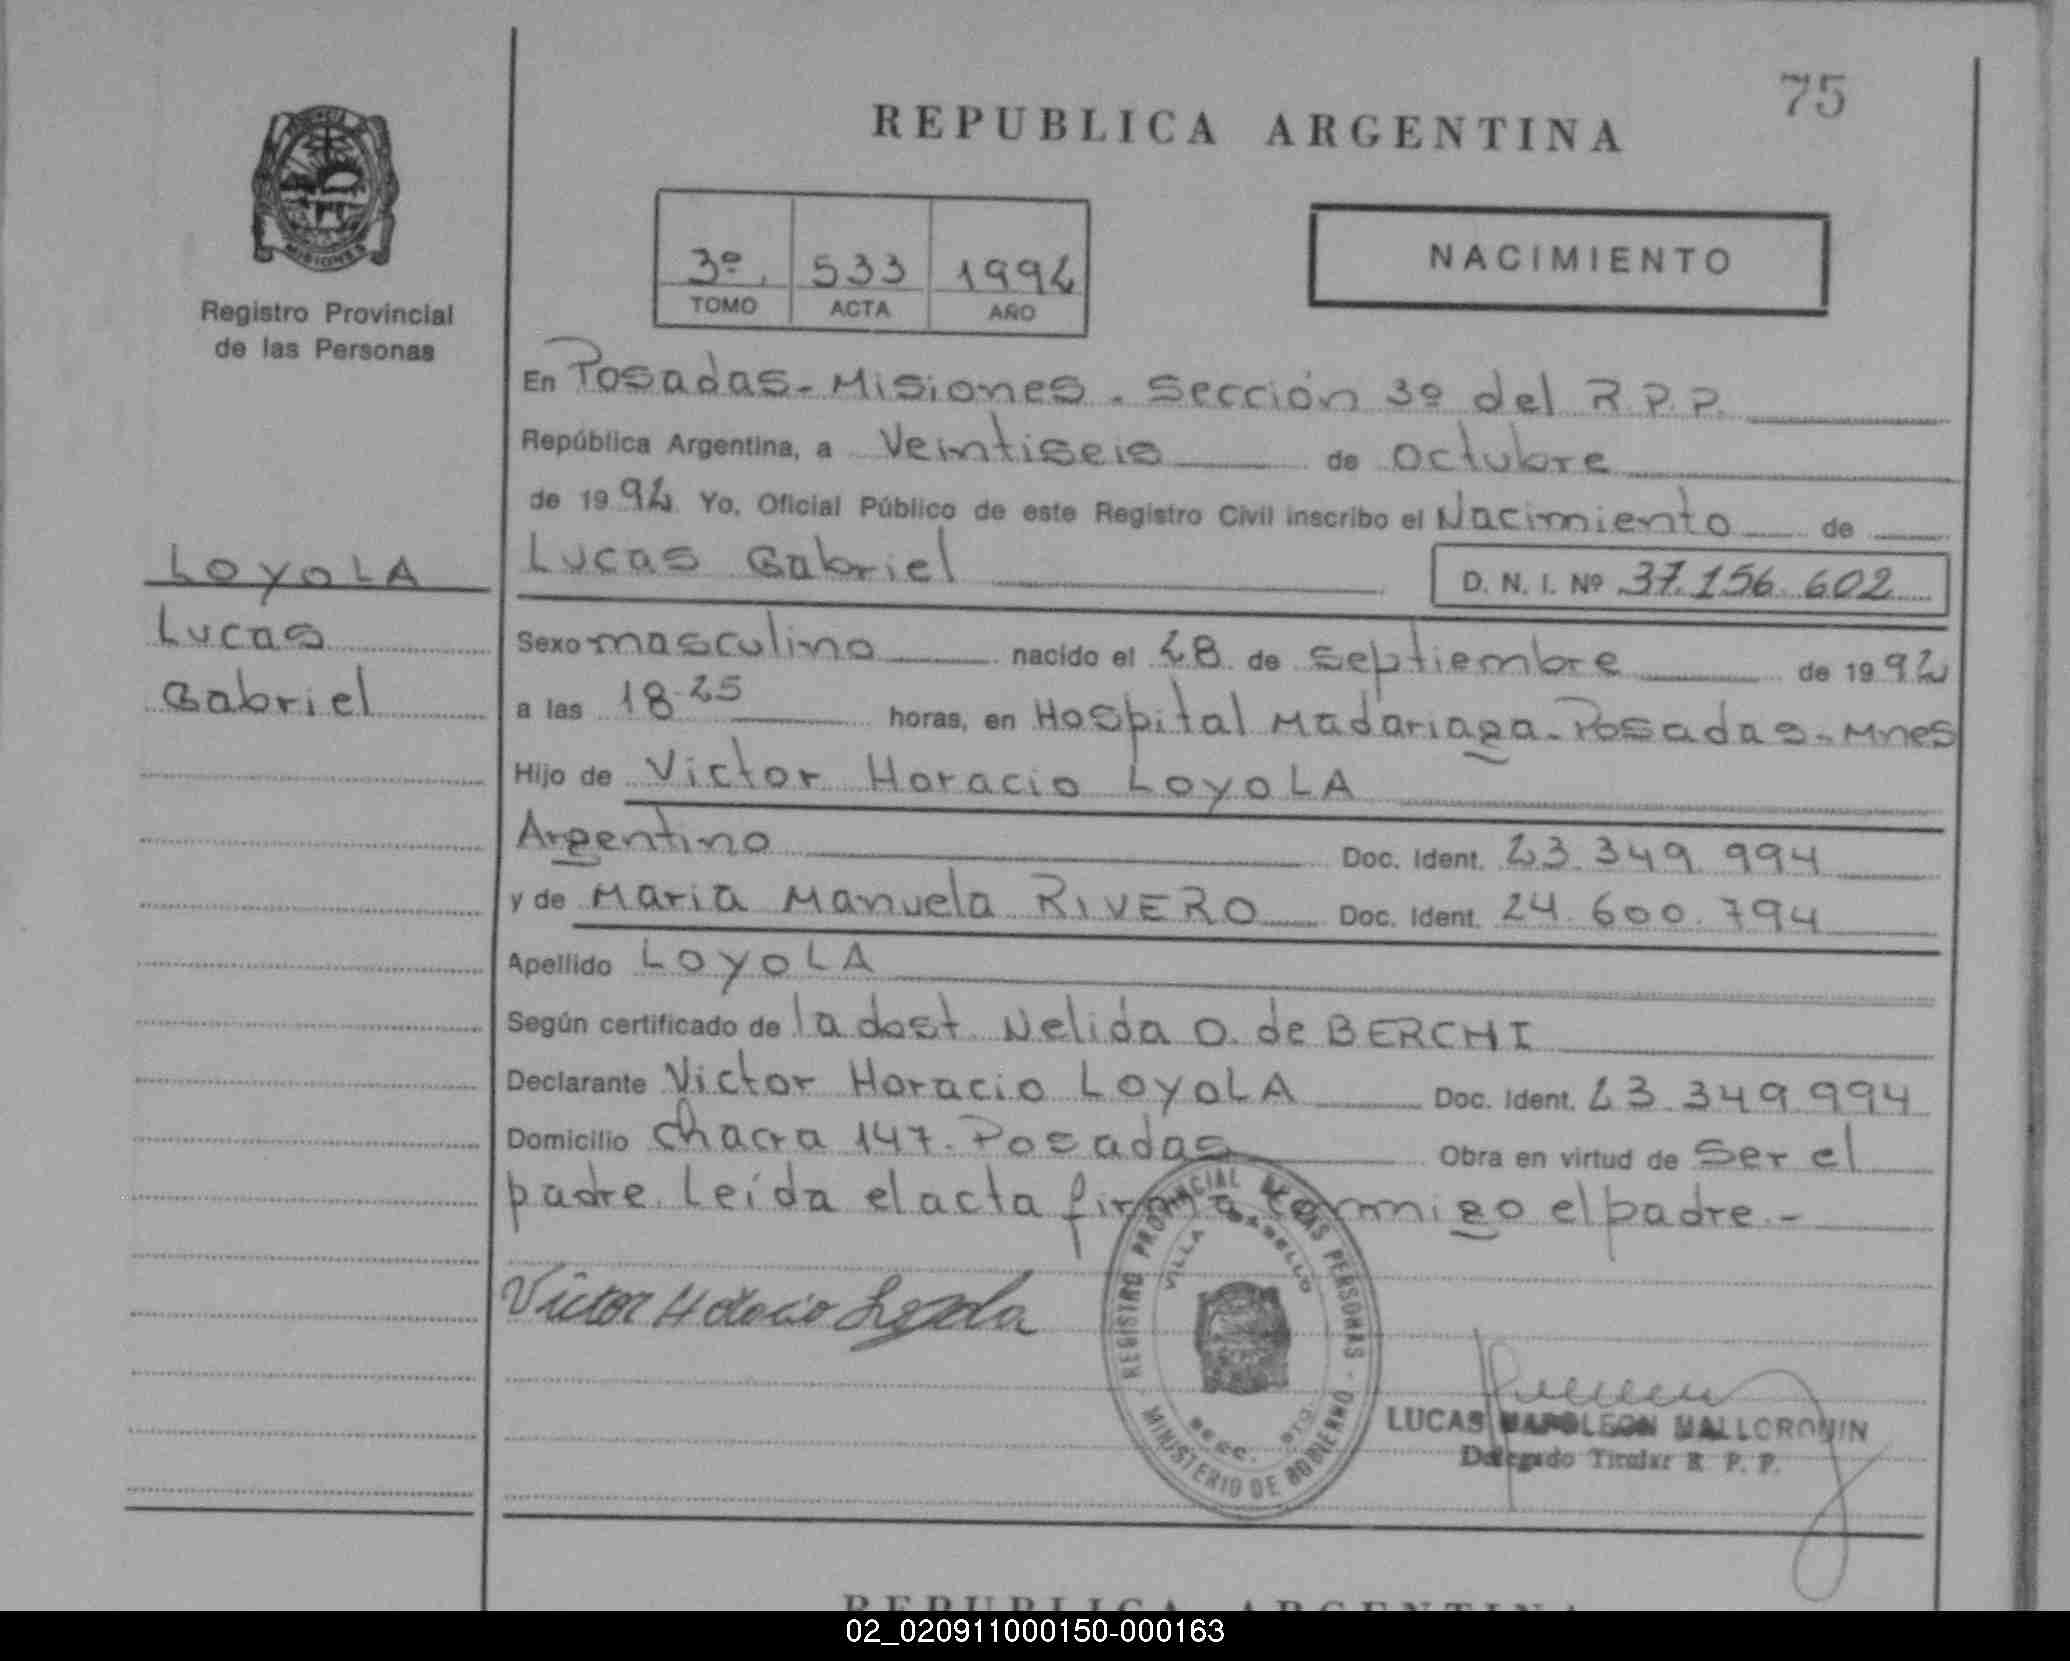 75
REPUBLICA ARGENTINA
PROVINCIA
MISIONES
Registro Provincial
de las Personas
3º. 533 1992
TOMO ACTA AÑO
NACIMIENTO
En Posadas-Misiones. Sección 3º del R.P.P.
República Argentina, a Veintiseis de octubre
de 1992 Yo, Oficial Público de este Registro Civil inscribo el Nacimiento de
Lucas Gabriel D. N. I. Nº 37.156.602
LOYOLA
Lucas
Gabriel
Sexo masculino nacido el 28 de septiembre de 1992
a las 18.25 horas, en Hospital Madariaga-Posadas-Mnes
Hijo de Victor Horacio LOYOLA
Argentino Doc. Ident. 23.349.994
y de Maria Manuela RIVERO Doc. Ident. 24.600.794
Apellido LOYOLA
Según certificado de la dost. Nelida O. de BERCHI
Declarante Victor Horacio LOYOLA Doc. Ident. 23.349.994
Domicilio chacra 147-Posadas Obra en virtud de ser el
padre. Leída el acta firma conmigo el padre.-
Victor Horacio Loyola
REGISTRO PROVINCIAL DE LAS PERSONAS - MINISTERIO DE GOBIERNO -
VILLA CABELLO
LUCAS NAPOLEON MALLORQUIN
Delegado Titular R. P. P.
REPUBLICA ARGENTINA
02_020911000150-000163